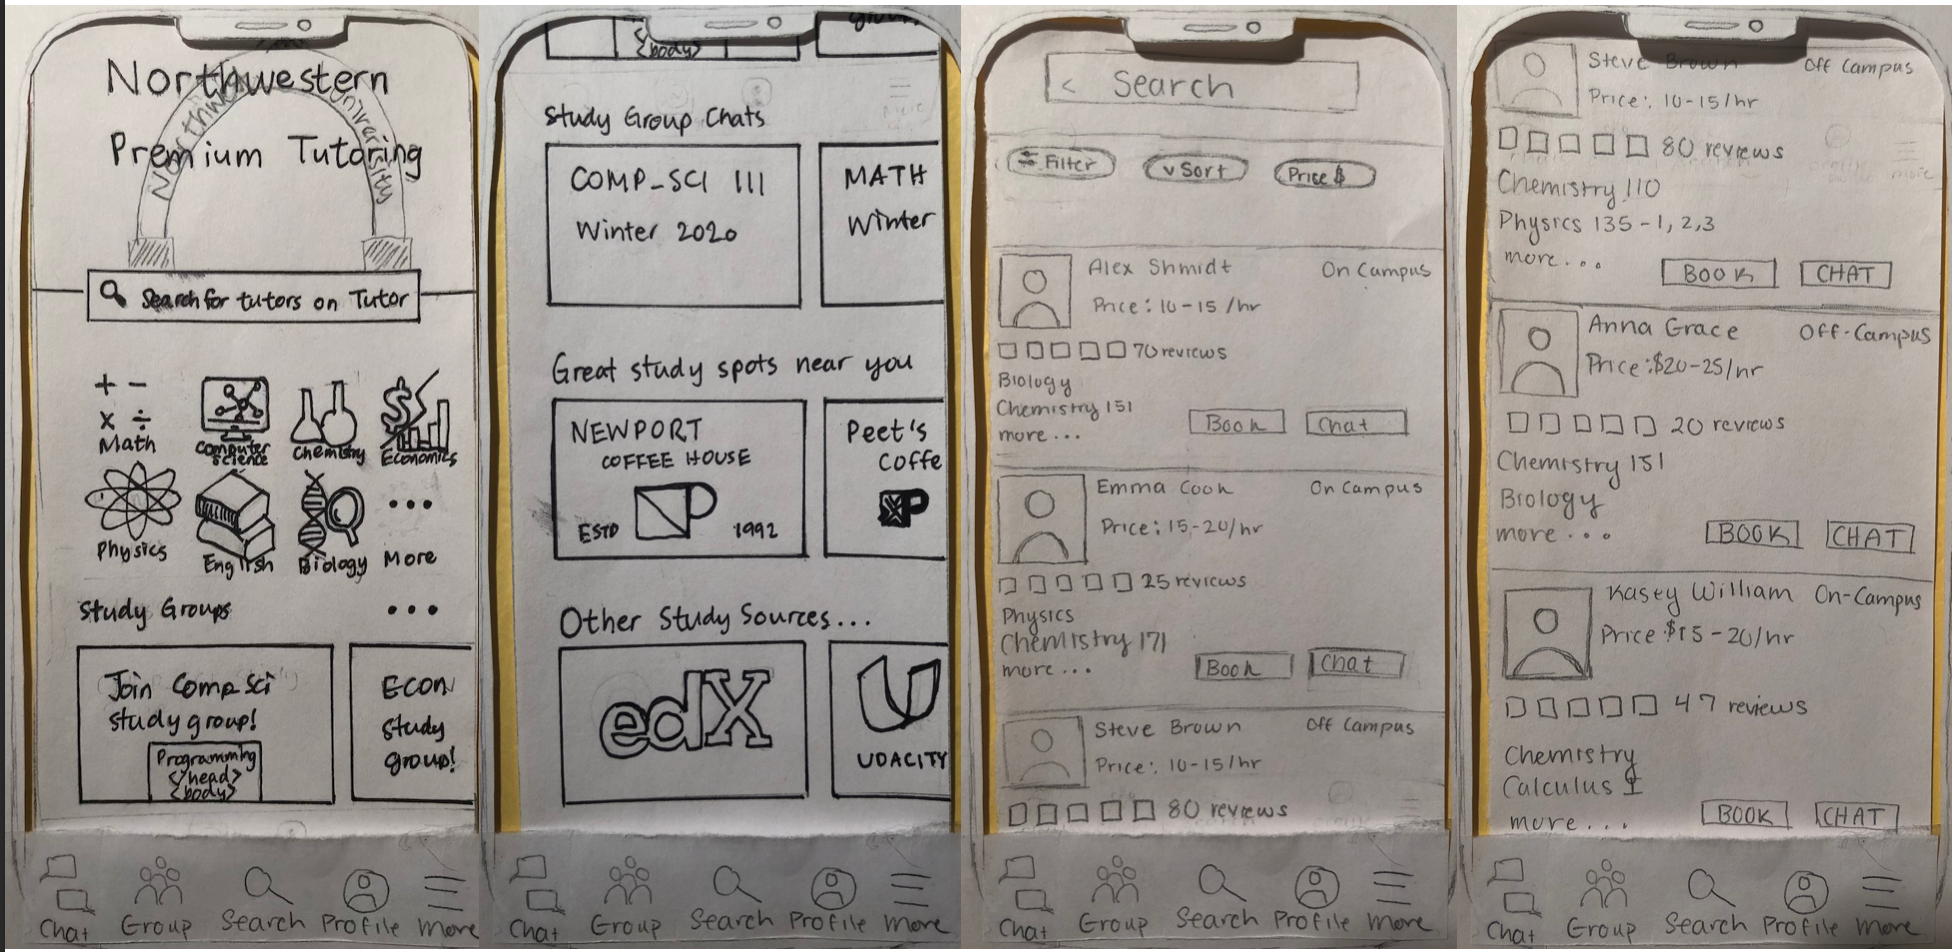 Northwestern
Northwestern University
Premium Tutoring
Search for tutors on Tutor
Math
Computer Science
Chemistry
Economics
Physics
English
Biology
More
Study Groups ...
Join Comp_Sci
study group!
Programming
</head>
<body>
ECON
study
group!
Chat
Group
Search
Profile
More
<body>
group!
Study Group Chats
COMP_SCI 111
Winter 2020
MATH
Winter
Great study spots near you
NEWPORT
COFFEE HOUSE
ESTD 1992
Peet's
Coffe
Other Study Sources...
edX
U
UDACITY
Chat
Group
Search
Profile
More
< Search
Filter
v Sort
Price $
Alex Shmidt On Campus
Price: 10-15 /hr
70 reviews
Biology
Chemistry 151
more ...
Book
Chat
Emma Cook On Campus
Price: 15-20/hr
25 reviews
Physics
Chemistry 171
more ...
Book
Chat
Steve Brown Off Campus
Price: 10-15/hr
80 reviews
Chat
Group
Search
Profile
More
Steve Brown Off Campus
Price: 10-15/hr
80 reviews
Chemistry 110
Physics 135-1,2,3
more...
BOOK
CHAT
Anna Grace Off-Campus
Price:$20-25/hr
20 reviews
Chemistry 151
Biology
more ...
BOOK
CHAT
Kasey William On-Campus
Price $15-20/hr
47 reviews
Chemistry
Calculus I
more...
BOOK
CHAT
Chat
Group
Search
Profile
More